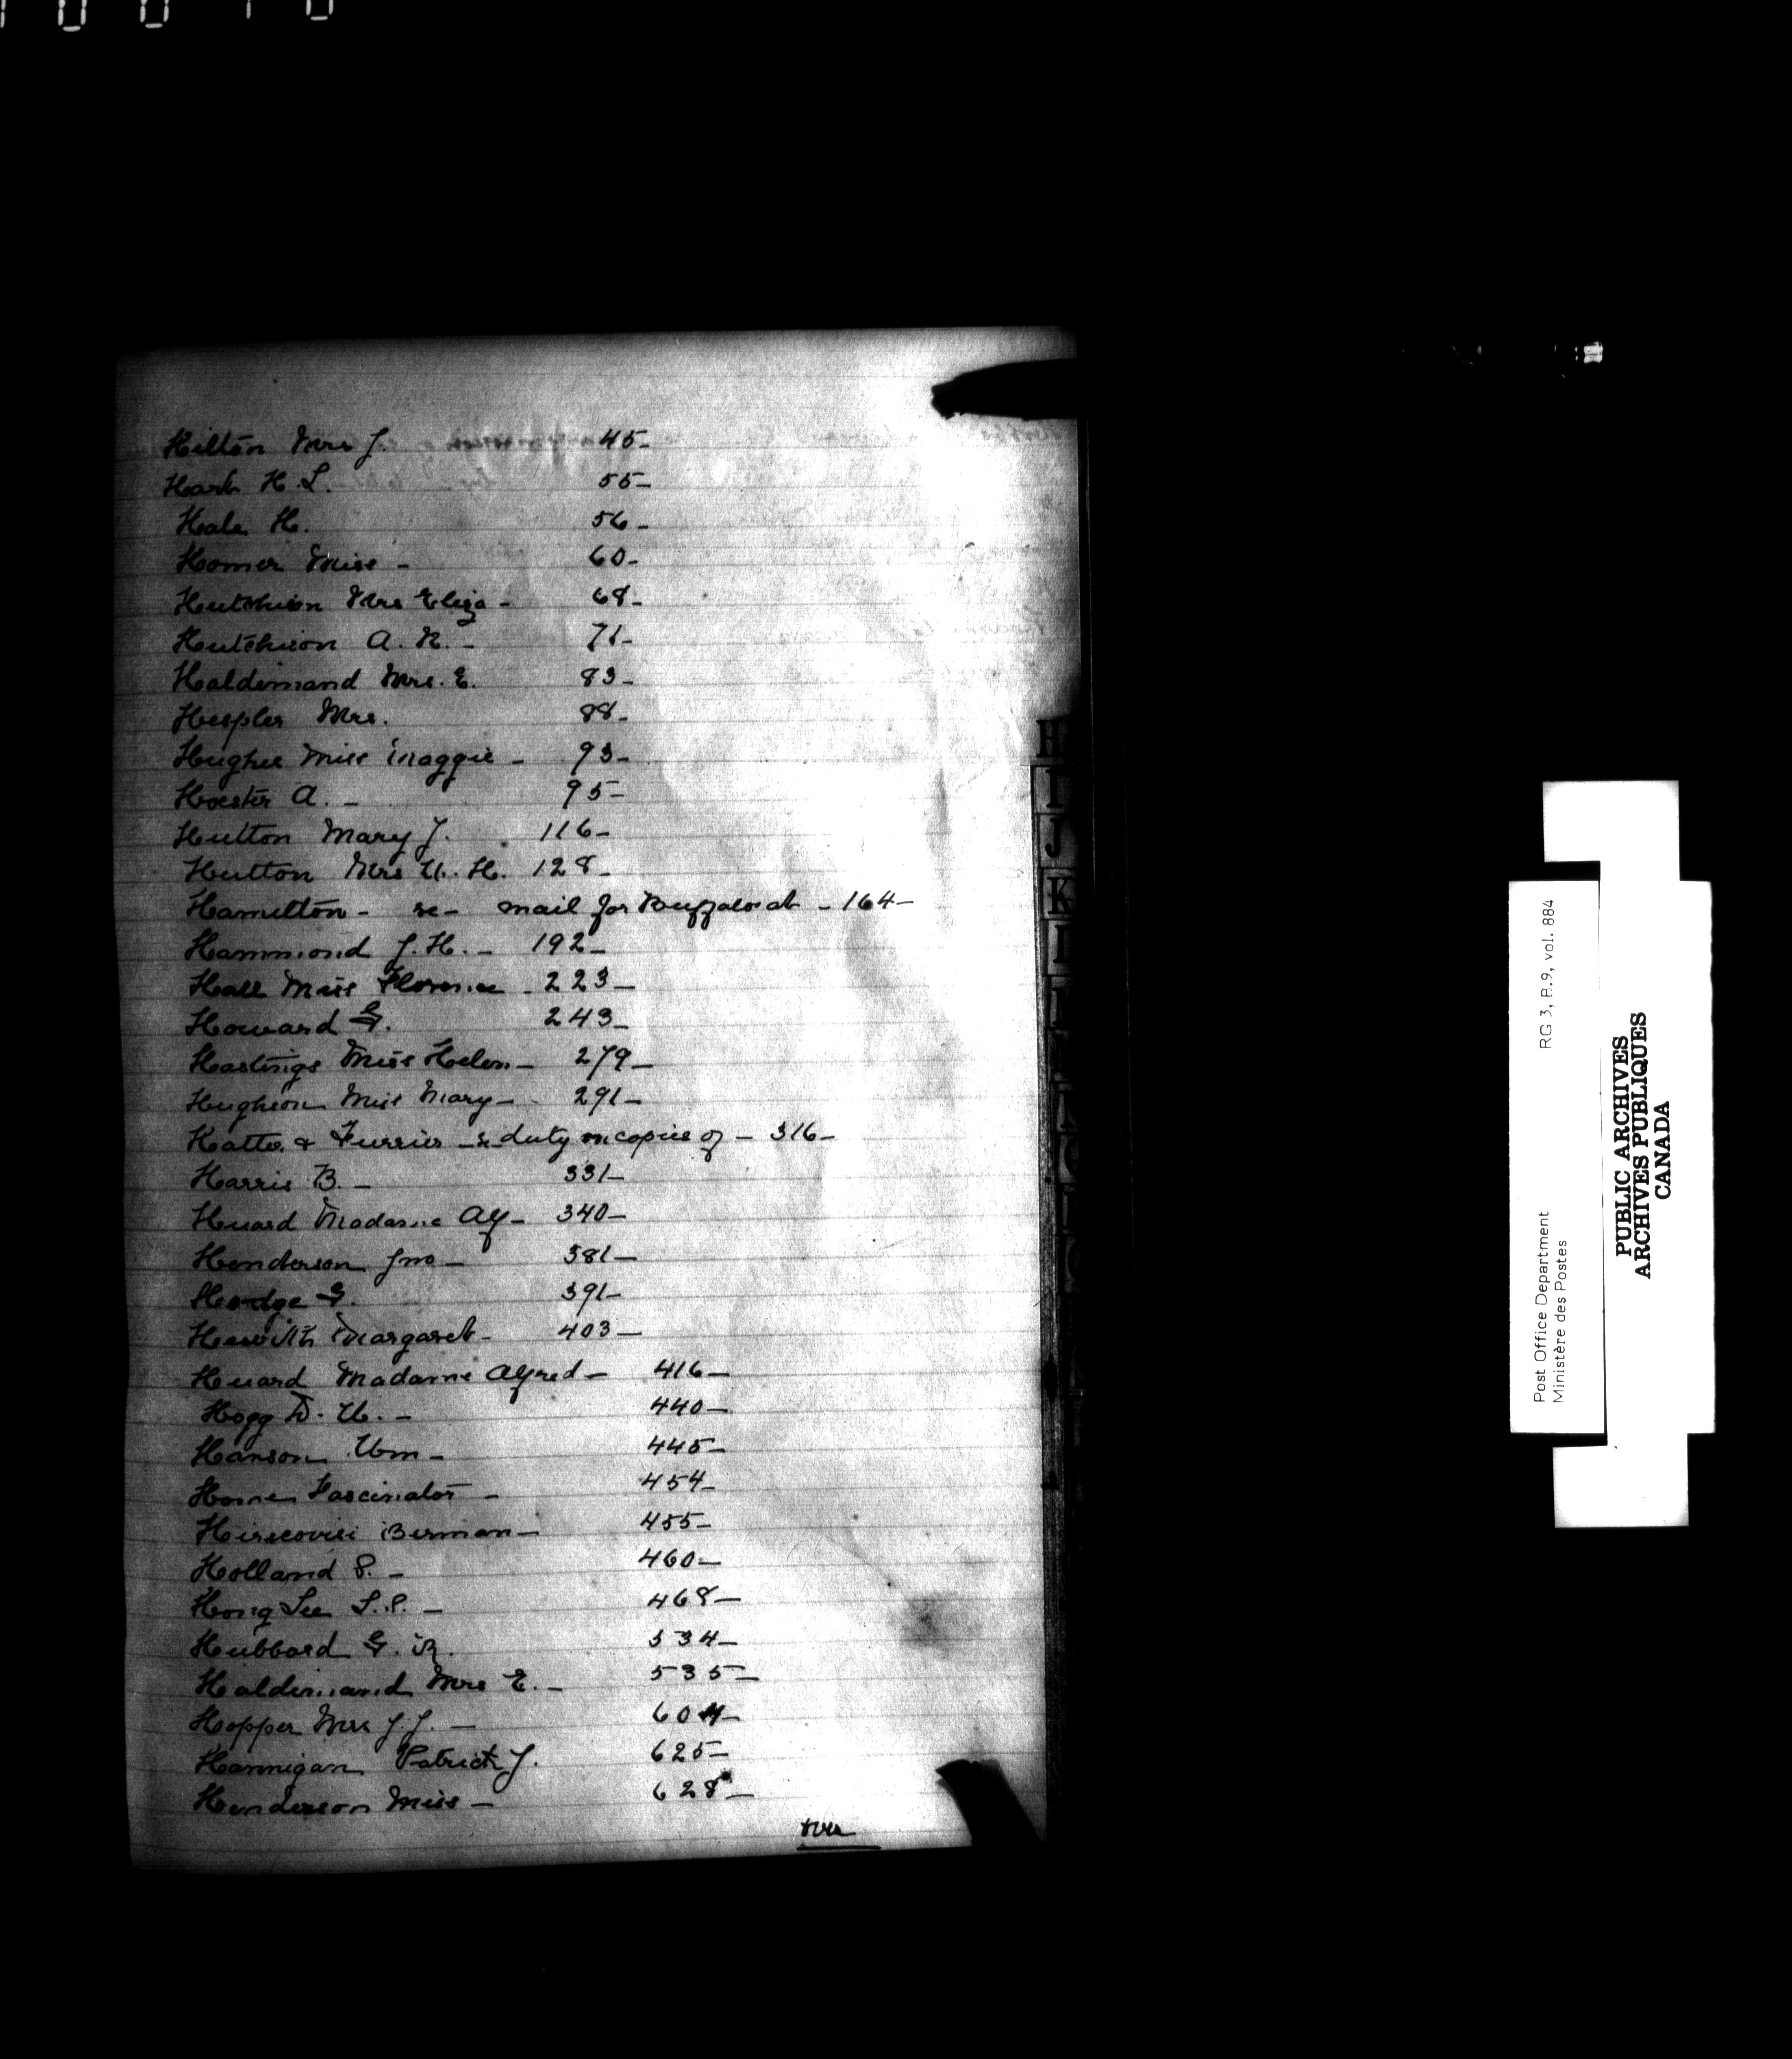 Hilton Mrs J. 45-
Hart H. L. 55-
Hale H. 56-
Homer Miss - 60-
Hutchison Mrs Eliza - 68-
Hutchison A. R. - 71-
Haldimand Mrs. E. 83-
Hespler Mrs. 88-
Hughes Miss Maggie - 93-
Hoester A. - 95-
Hutton Mary J. 116-
Hutton Mrs W. H. 128-
Hamilton - re - mail for Buffalo at - 164-
Hammond J. H. - 192-
Hall Miss Florence - 223-
Howard G. 243-
Hastings Miss Helen - 279-
Hughson Miss Mary - 291-
Hatter & Furrier - re duty on copies of - 316-
Harris B. - 331-
Huard Madame Alf - 340-
Henderson Jno - 381-
Hodge G. 391-
Hewitt Margaret - 403-
Huard Madame Alfred - 416-
Hogg D. W. - 440-
Hanson Wm - 445-
Home Fascinator - 454-
Herscovici Berman - 455-
Holland S. - 460-
Hong Lee L. S. - 468-
Hubbard G. R. 534-
Haldimand Mrs E. - 535-
Hopper Mrs J. J. - 604-
Hannigan Patrick J. 625-
Henderson Miss - 628-
over
H
I
J
K
L
Post Office Department RG 3, B.9, vol. 884
Ministère des Postes
PUBLIC ARCHIVES
ARCHIVES PUBLIQUES
CANADA